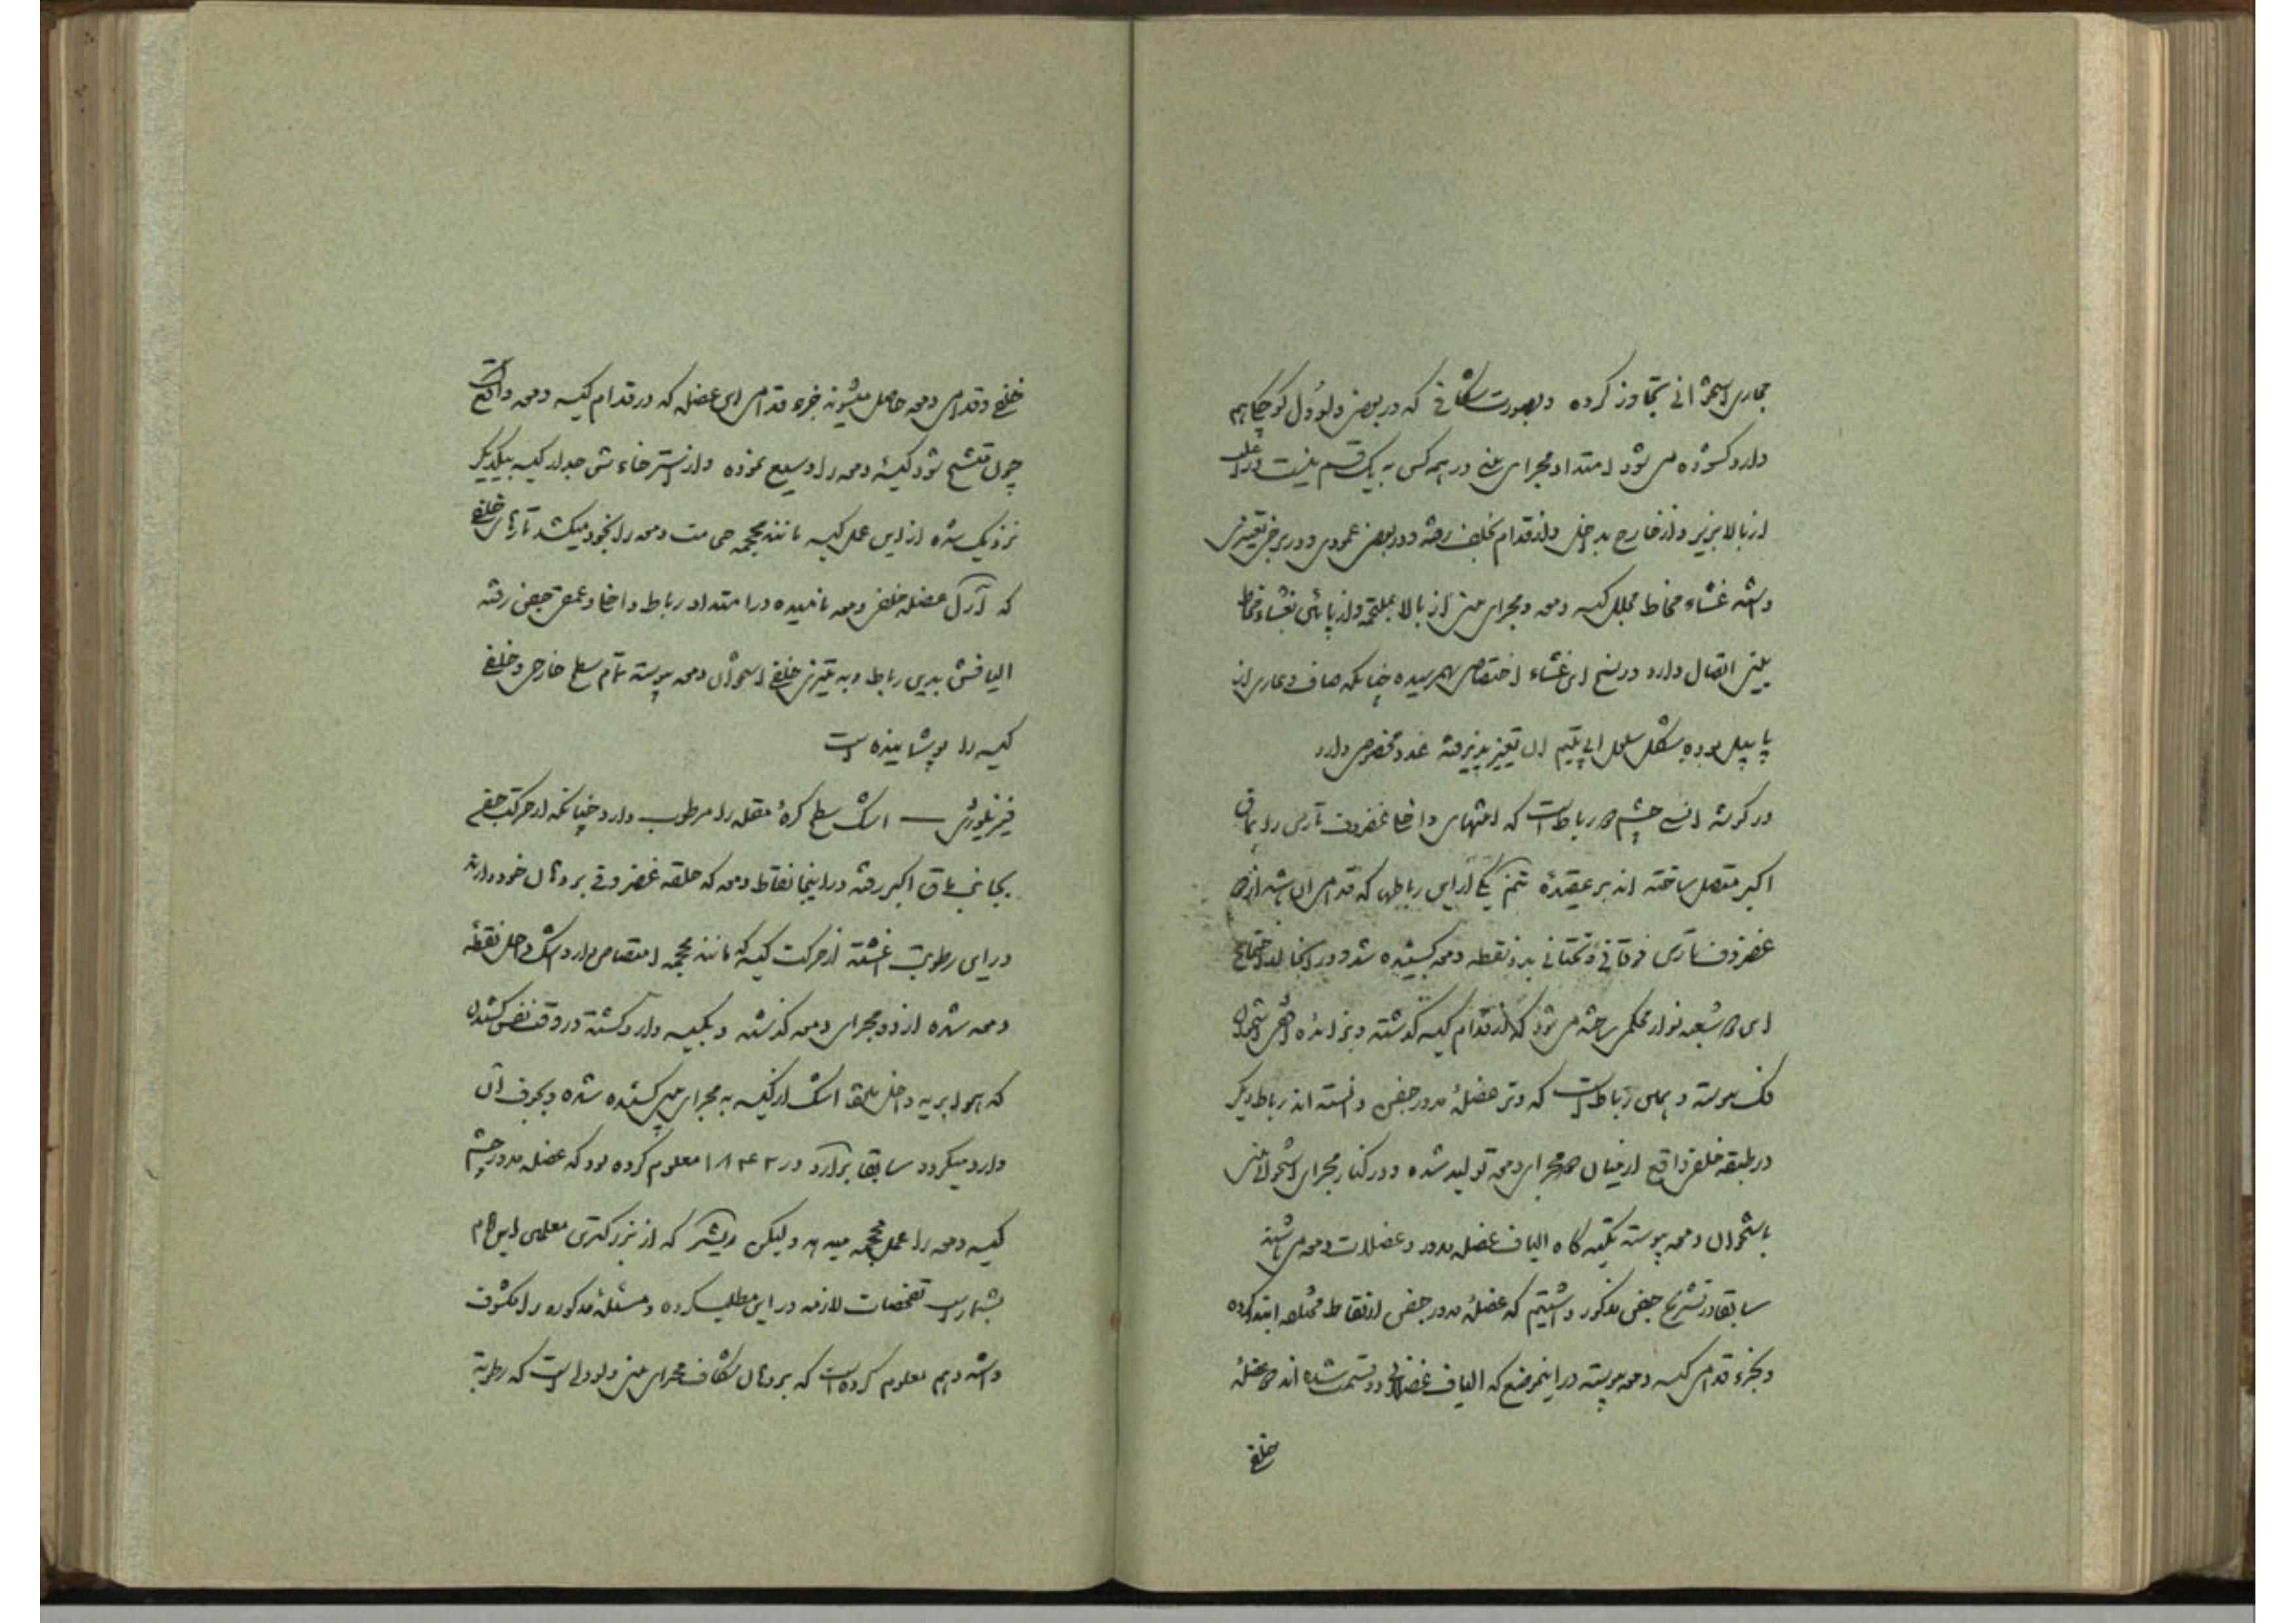 مجاری استخوانی تجاوز کرده و بصورت شکافی که در بعض ولوول کوچک هم
دارد کشوده می شود امتداد مجرای بینی در همه کس به یک قسم نیست در اغلب
از بالا بزیر و از خارج بداخل و از قدام بخلف رفته و در بعض عمودی و در برخی تغییری
داشته غشاء مخاط مجلل کیسه دمعه و مجرای بینی از بالا بملتحمه و از پائین بغشاء مخاط
بینی اتصال دارد در نسج این غشاء اختصاصی بهم رسیده چنانکه صاف و عاری از
پاپیل بوده شکل سلول اپیتلیم آن تغییر پذیرفته غدد مخصوص دارد
در گوشه انسی چشم دو رباط است که انتهای داخل غضروف تارس را بماق
اکبر متصل ساخته اند بر عقیده تنم یکی از این رباطها که قدامی آن باشد از دو
غضروف تارس فوقانی و تحتانی بدو نقطه دمعه کشیده شد و در آنجا از اجتماع
این دو شعبه نوار محکمی ساخته می شود که از قدام کیسه گذشته و بزائده استخوان
فک پیوسته و همین رباط است که وتر عضله مدور جفنی دانسته اند رباط دیگر
در طبقه خلفی واقع از میان دو مجرای دمعی تولید شده و در کنار مجرای استخوانی بینی
باستخوان دمعه پیوسته تکیه گاه الیاف عضله مدور و عضلات دمعه می باشند
سابقا در تشریح جفن مذکور داشتیم که عضله مدور جفنی از نقاط مختلفه ابتدا کرده
و بجزء قدامی کیسه دمعه پیوسته در اینموضع که الیاف عضلانی دو قسمت شده اند دو عضله
خلفی
خلفی و قدامی دمعی حاصل میشوند جزء قدامی این عضله که در قدام کیسه دمعه واقع است
چون متشنج شود کیسه دمعه را وسیع نموده و از استرخاء تش جدار کیسه بیکدیگر
نزدیک شده از این عمل کیسه مانند محجمه حی مت دمعه را بخود میکشد تارهای خلفی
که آنرا عضله خلفی دمعه نامیده در امتداد رباط داخل و عمق جفن رفته
الیافش بدین رباط و به تیزی خلفی استخوان دمعه پیوسته تمام سطح خارجی و خلفی
کیسه را پوشانیده است
فیزیلوژی — اشک سطح کره مقله را مرطوب دارد چنانکه از حرکت جفن
بجانب ماق اکبر رفته در اینجا نقاط دمعه که حلقه غضروفی بر دهان خود دارند
در این رطوبت آغشته از حرکت کیسه که مانند محجمه امتصاص دارد اشک داخل نقطه
دمعه شده از دو مجرای دمعه گذشته و بکیسه وارد گشته در وقت نفس کشیدن
که هوا بریه داخل میشود اشک از کیسه به مجرای بینی کشیده شده و بجوف آن
وارد میگردد سابقا برارد در ۱۸۴۳ معلوم کرده بود که عضله مدور چشم
کیسه دمعه را عمل محجمه میدهد و لیکن ریشتر که از بزرگترین معلمین این علم
بشمار است تفحصات لازمه در این مطلب کرده و مسئله مذکوره را مکشوف
داشته و هم معلوم کرده است که بر دهان شکاف مجرای بینی ولوولی است که رطوبة